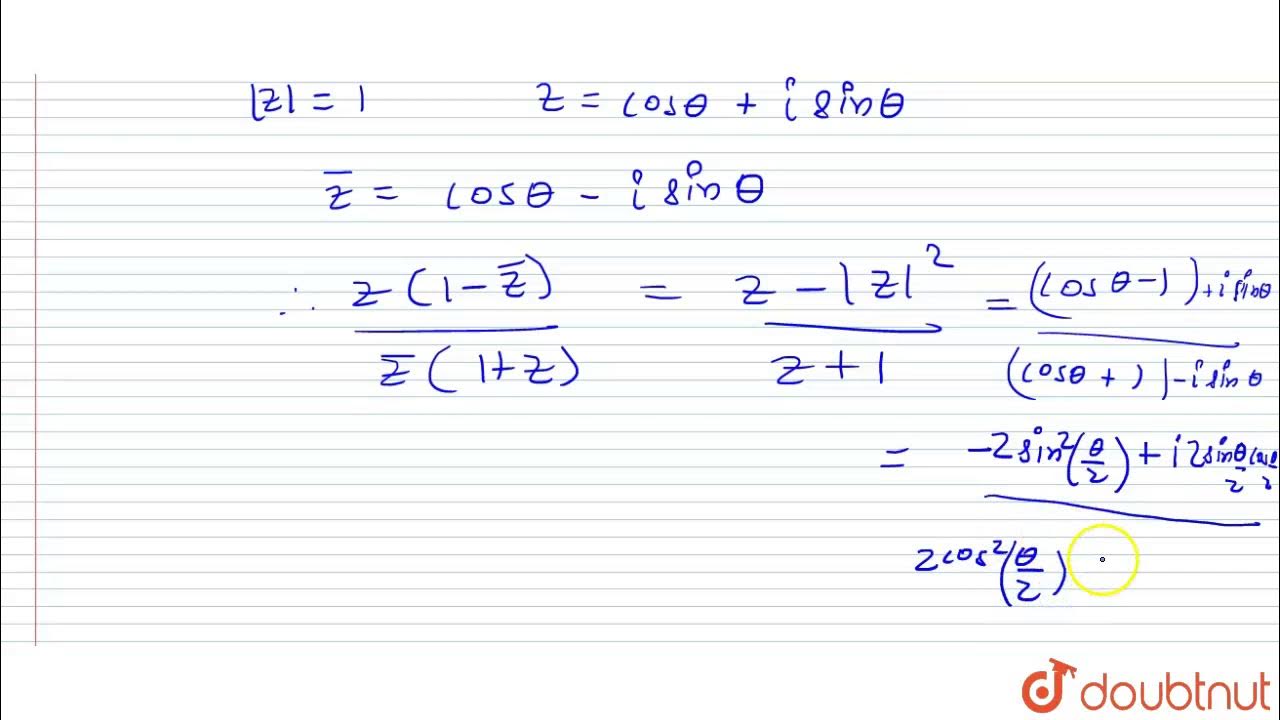 |z| = 1 z = cosθ + i sinθ
z̅ = cosθ - i sinθ
∴ z(1-z̅) / z̅(1+z) = z - |z|² / z+1 = (cosθ-1)+i sinθ / (cosθ+1)-i sinθ
= -2sin²(θ/2) + i2sinθ/2 cosθ/2 / 2cos²(θ/2)
doubtnut